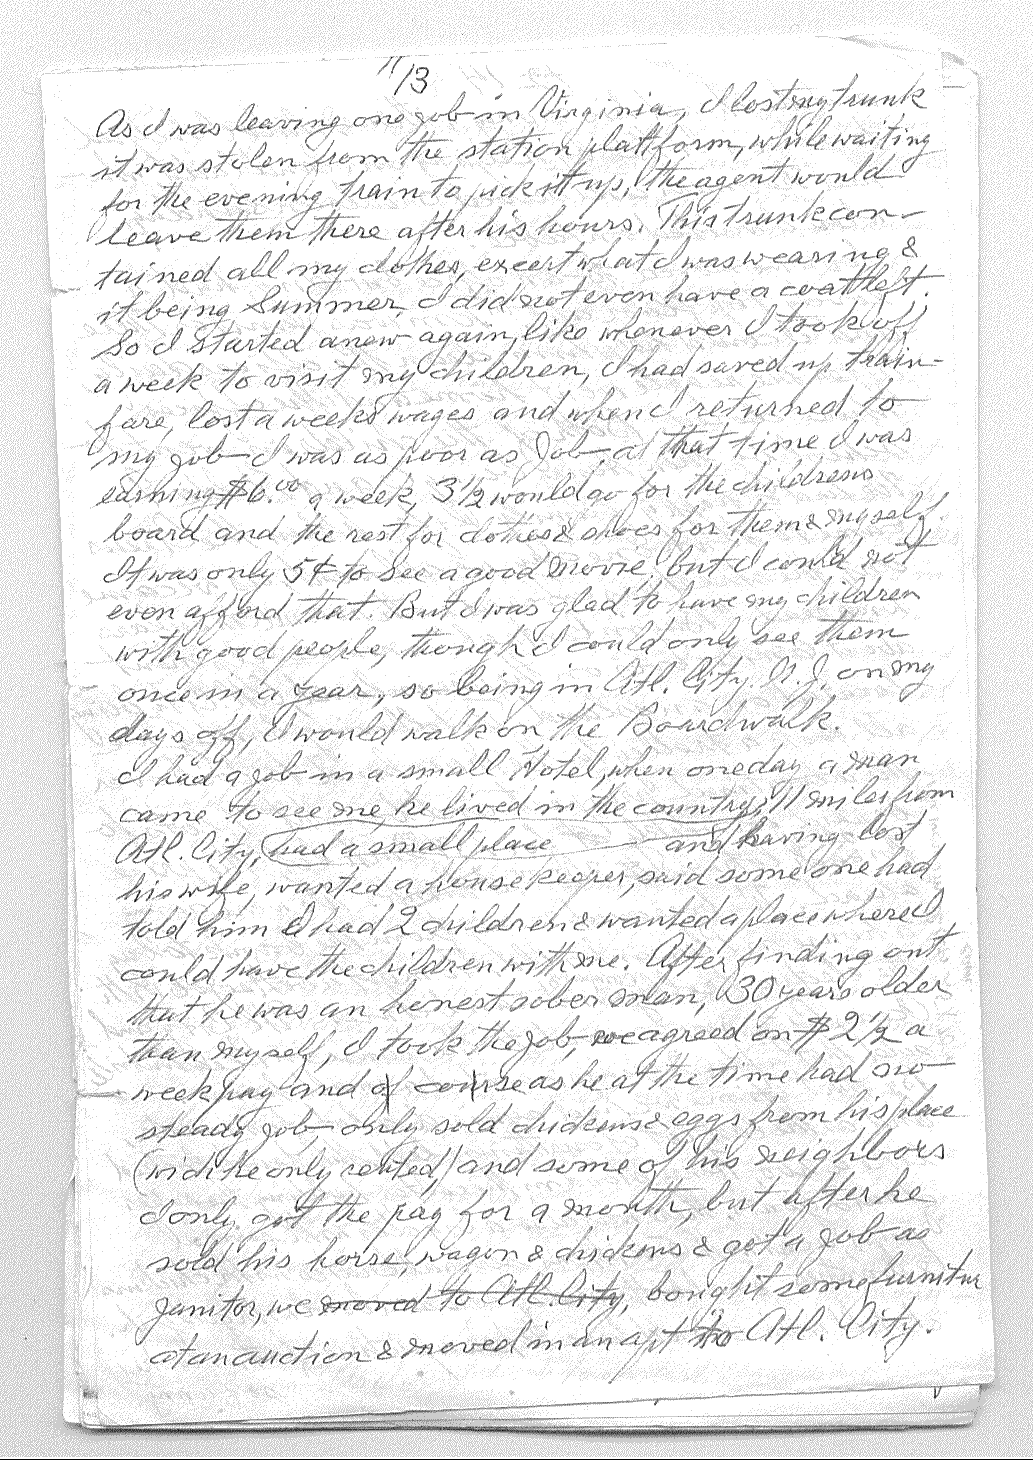 11/13
As I was leaving one job in Virginia, I lost my trunk
it was stolen from the station plattform, while waiting
for the evening train to pick it up, the agent would
leave them there after his hours. This trunk con-
tained all my clothes, excert what I was wearing &
it being Summer, I did not even have a coat left.
So I started anew again, like whenever I took off
a week to visit my children, I had saved up train-
fare, lost a weeks wages and when I returned to
my job I was as poor as Job. at that time I was
earning $6.00 a week, 3 1/2 would go for the childrens
board and the rest for clothes & shoes for them & myself.
It was only 5¢ to see a good movie, but I could not
even afford that. But I was glad to have my children
with good people, though I could only see them
once in a year, so being in Atl. City. N.J. on my
days off, I would walk on the Boardwalk.
I had a job in a small Hotel, when one day a man
came to see me, he lived in the country, 11 miles from
Atl. City, had a small place and having lost
his wife, wanted a housekeeper, said some one had
told him I had 2 children & wanted a place where I
could have the children with me. After finding out
that he was an honest sober man, 30 years older
than myself, I took the job, we agreed on $2 1/2 a
week pay and of course as he at the time had no
steady job, only sold chickens & eggs from his place
(wich he only rented) and some of his neighbors
I only got the pay for a month, but after he
sold his horse, wagon & chickens & got a job as
janitor, we moved to Atl. City, bought some furnitur
at an auction & moved in an apt in Atl. City.